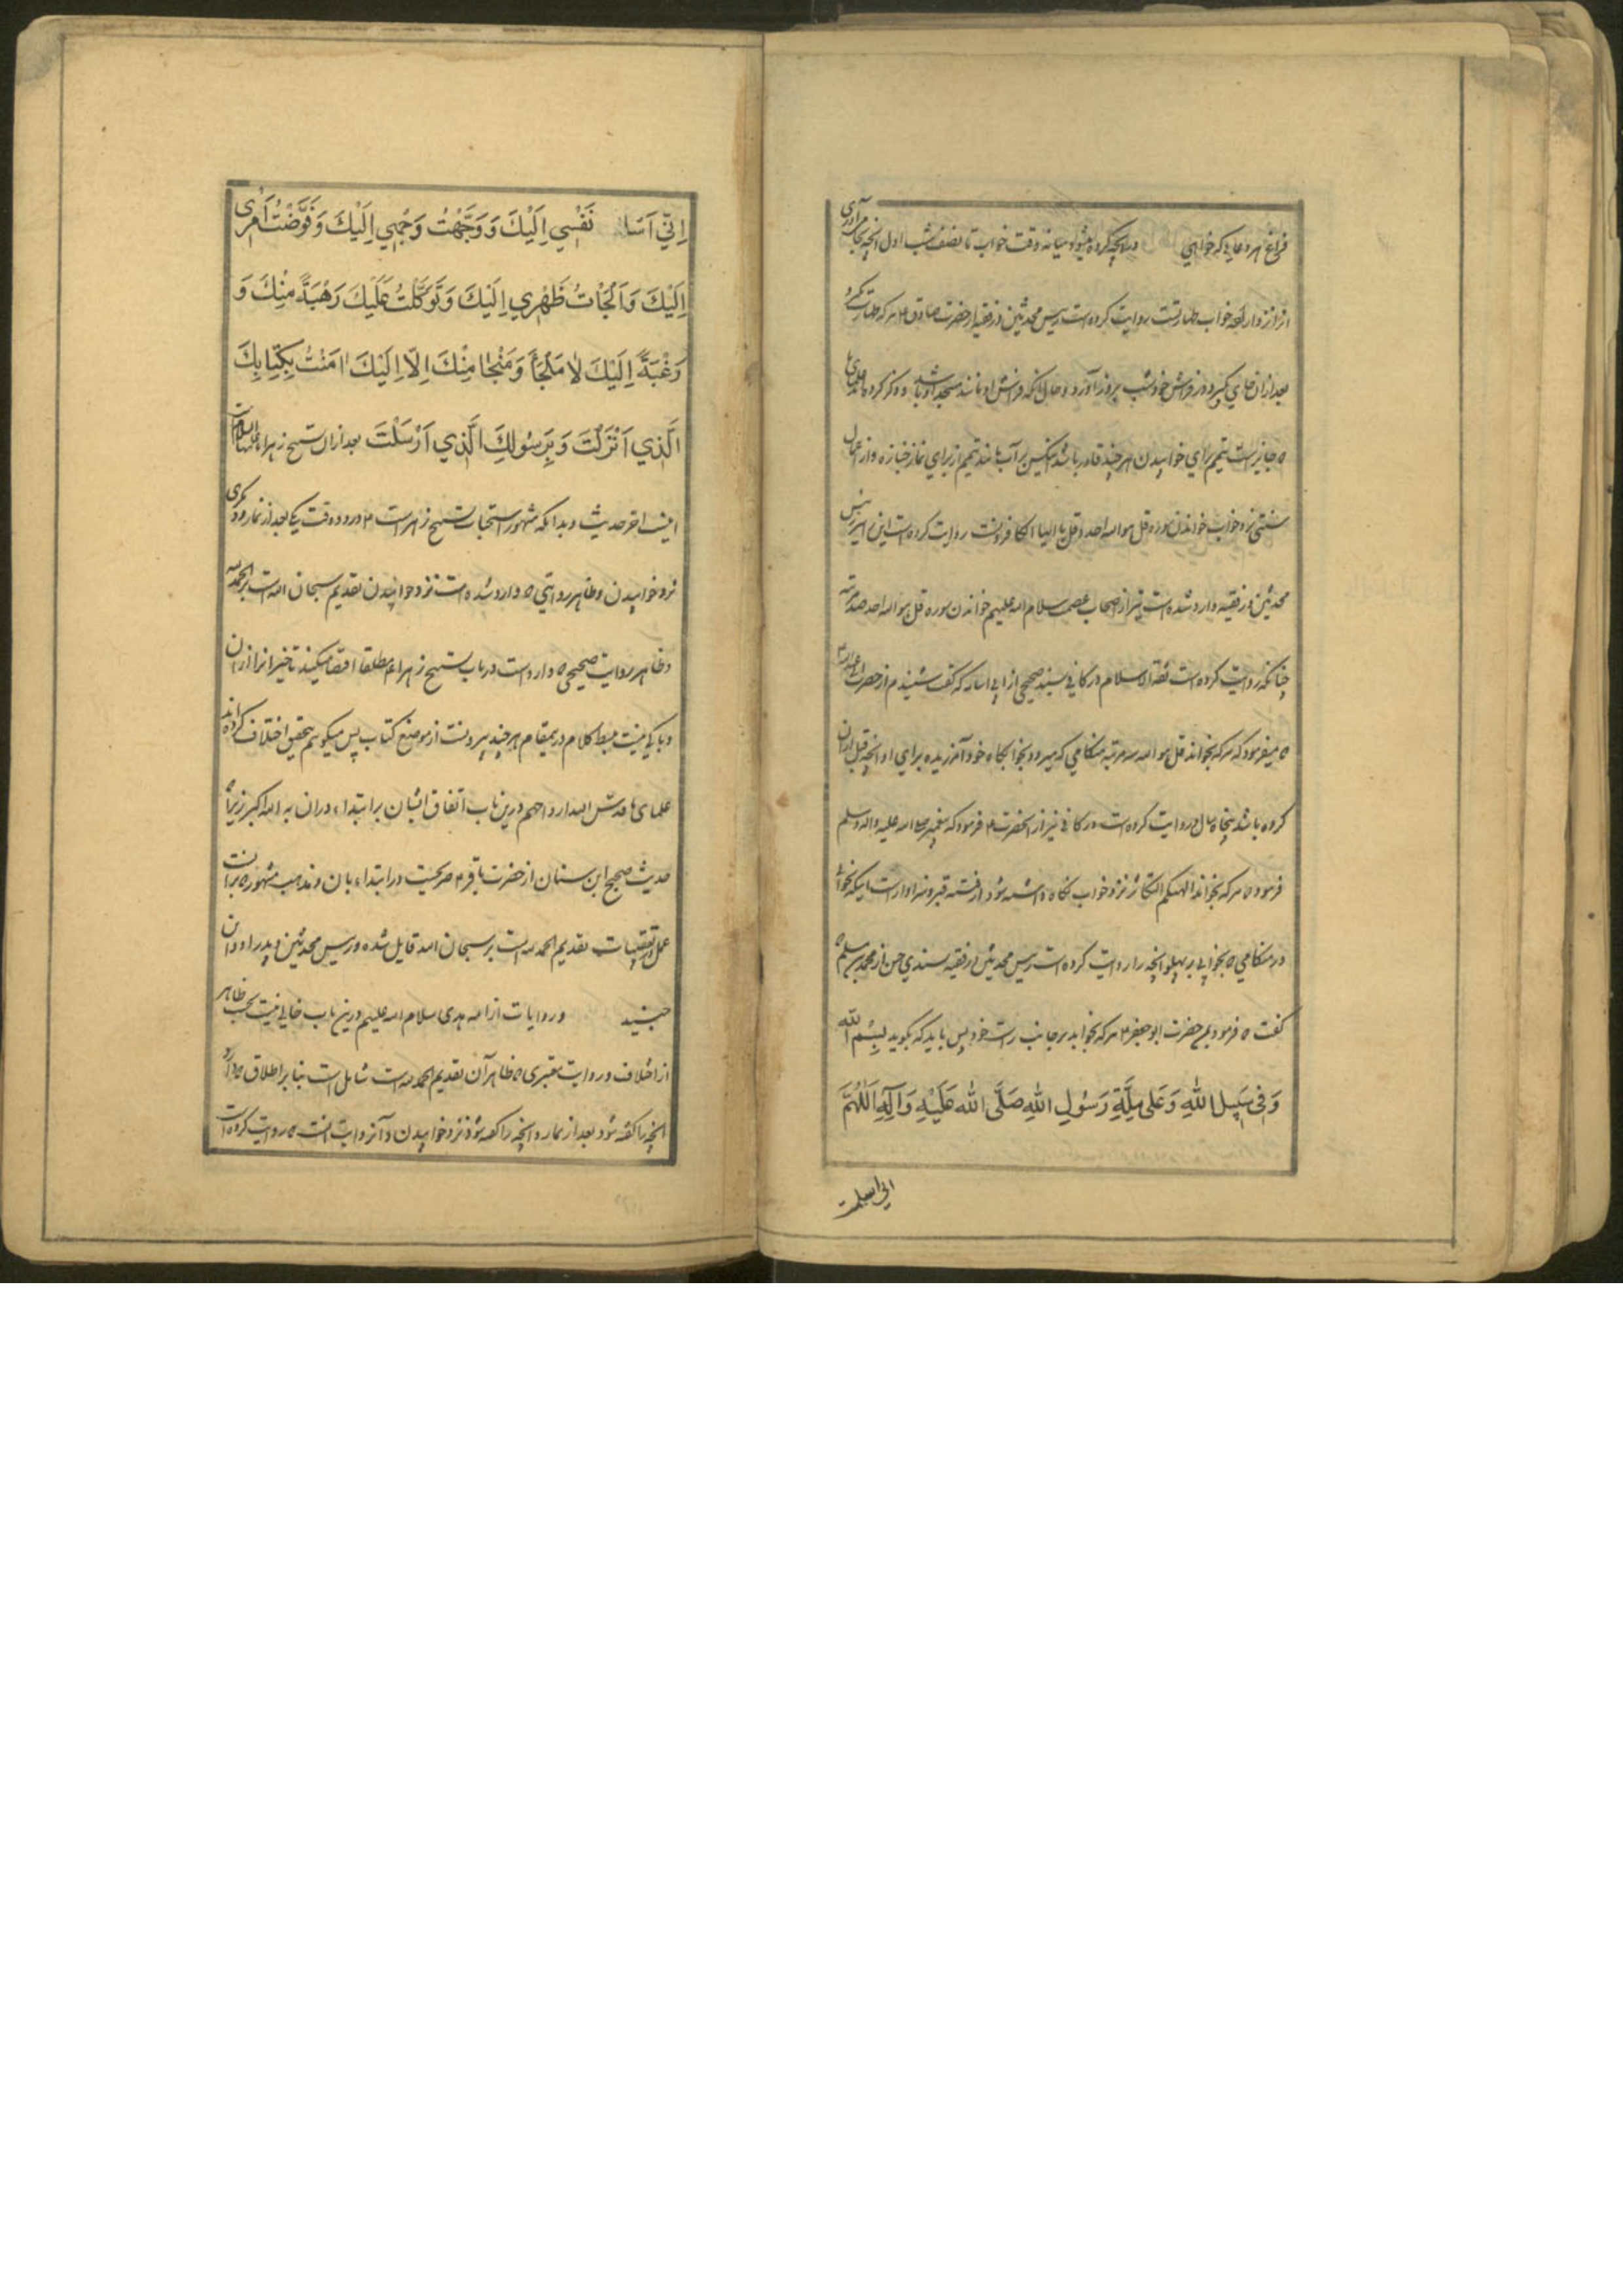 فراغ هر دعایی که خواهی در آنچه کرده میشود میانه وقت خواب تا نصف شب اول آنچه بجا می آوری
انرا نزد اراده خواب طهارتست روایت کرده است رییس محدثین در فقیه از حضرت صادق ع هر که طهارت کند
بعد از ان جای گیرد در فرش خود شب بروز آورد و حال آنکه فرش او مانند مسجد او باشد و ذکر کرده اند علمای ما
که جایز است تیمم برای خوابیدن هر چند قادر باشد شخص بر آب مانند تیمم از برای نماز جنازه و از اعمال
سنتی نزد خواب خواندن سوره قل هو الله احد و قل یا ایها الکافرونست روایت کرده است این را رییس
محدثین در فقیه و وارد شده است نیز از اصحاب عصمت سلام الله علیهم خواندن سوره قل هو الله احد صد مرتبه
چنانکه روایت کرده است ثقة الاسلام در کافی بسند صحیحی از ابی اسامه که گفت شنیدم از حضرت ابی عبدالله ع
که میفرمود که هر که بخواند قل هو الله صد مرتبه هنگامی که میرود بخوابگاه خود آمرزیده برای او آنچه قبل از ان
کرده باشد پنجاه سال و روایت کرده است در کافی نیز از آنحضرت ع فرمود که پیغمبر صلی الله علیه واله وسلم
فرمود که هر که بخواند الهیکم التکاثر نزد خواب نگاه داشته شود از فتنه قبر و سزاوار است اینکه بخواند
در هنگامی که بخوابی بر پهلو آنچه را روایت کرده است رییس محدثین در فقیه بسندی حسن از محمد بن مسلم
گفت که فرمود بمن حضرت ابو جعفر ع هر که بخوابد بر جانب راست خود پس باید که بگوید بِسْمِ اللهِ
وَفِي سَبِيلِ اللهِ وَعَلى مِلَّةِ رَسُولِ اللهِ صَلَّى اللهُ عَلَيْهِ وَآلِهِ اَللّهُمَّ
انی اسلمت
اِنّي اَسْلَمْتُ نَفْسِي اِلَيْكَ وَوَجَّهْتُ وَجْهِي اِلَيْكَ وَفَوَّضْتُ اَمْرِي
اِلَيْكَ وَاَلْجَأْتُ ظَهْرِي اِلَيْكَ وَتَوَكَّلْتُ عَلَيْكَ رَهْبَةً مِنْكَ وَ
رَغْبَةً اِلَيْكَ لا مَلْجَأَ وَمَنْجا مِنْكَ اِلّا اِلَيْكَ امَنْتُ بِكِتابِكَ
الَّذِي اَنْزَلْتَ وَبِرَسُولِكَ الَّذِي اَرْسَلْتَ بعد از ان تسبیح زهراء علیها السلام
اینست اخر حدیث و بدانکه مشهور استحباب تسبیح زهراست ع در دو وقت یکی بعد از نماز و دیگری
نزد خوابیدن و ظاهر روایتی که وارد شده است نزد خوابیدن تقدیم سبحان الله است بر الحمد لله
و ظاهر روایت صحیحی که وارد است در باب تسبیح زهراء ع مطلقا اقتضا میکند تاخیر انرا از ان
و باکی نیست ببسط کلام در ینمقام هر چند بیرونست از موضع کتاب پس میگویم بتحقیق اختلاف کرده اند
علمای ما قدس الله ارواحهم درین باب با اتفاق ایشان بر ابتداء در ان به الله اکبر زیرا که
حدیث صحیح ابن سنان از حضرت باقر ع صریحست در ابتداء بان و مذهب مشهور که بر انست
عمل در تعقیبات تقدیم الحمد لله است بر سبحان الله قایل شده و رییس محدثین و پدر او و ابن
جنید و روایات از ائمه هدی سلام الله علیهم درین باب خالی نیست بحسب ظاهر
از اختلاف و روایت معتبری که ظاهر آن تقدیم الحمد لله است شامل است بنا بر اطلاق که دارد
آنچه را گفته شود بعد از نماز و آنچه را گفته شود نزد خوابیدن و آنروایت انست که روایت کرده است